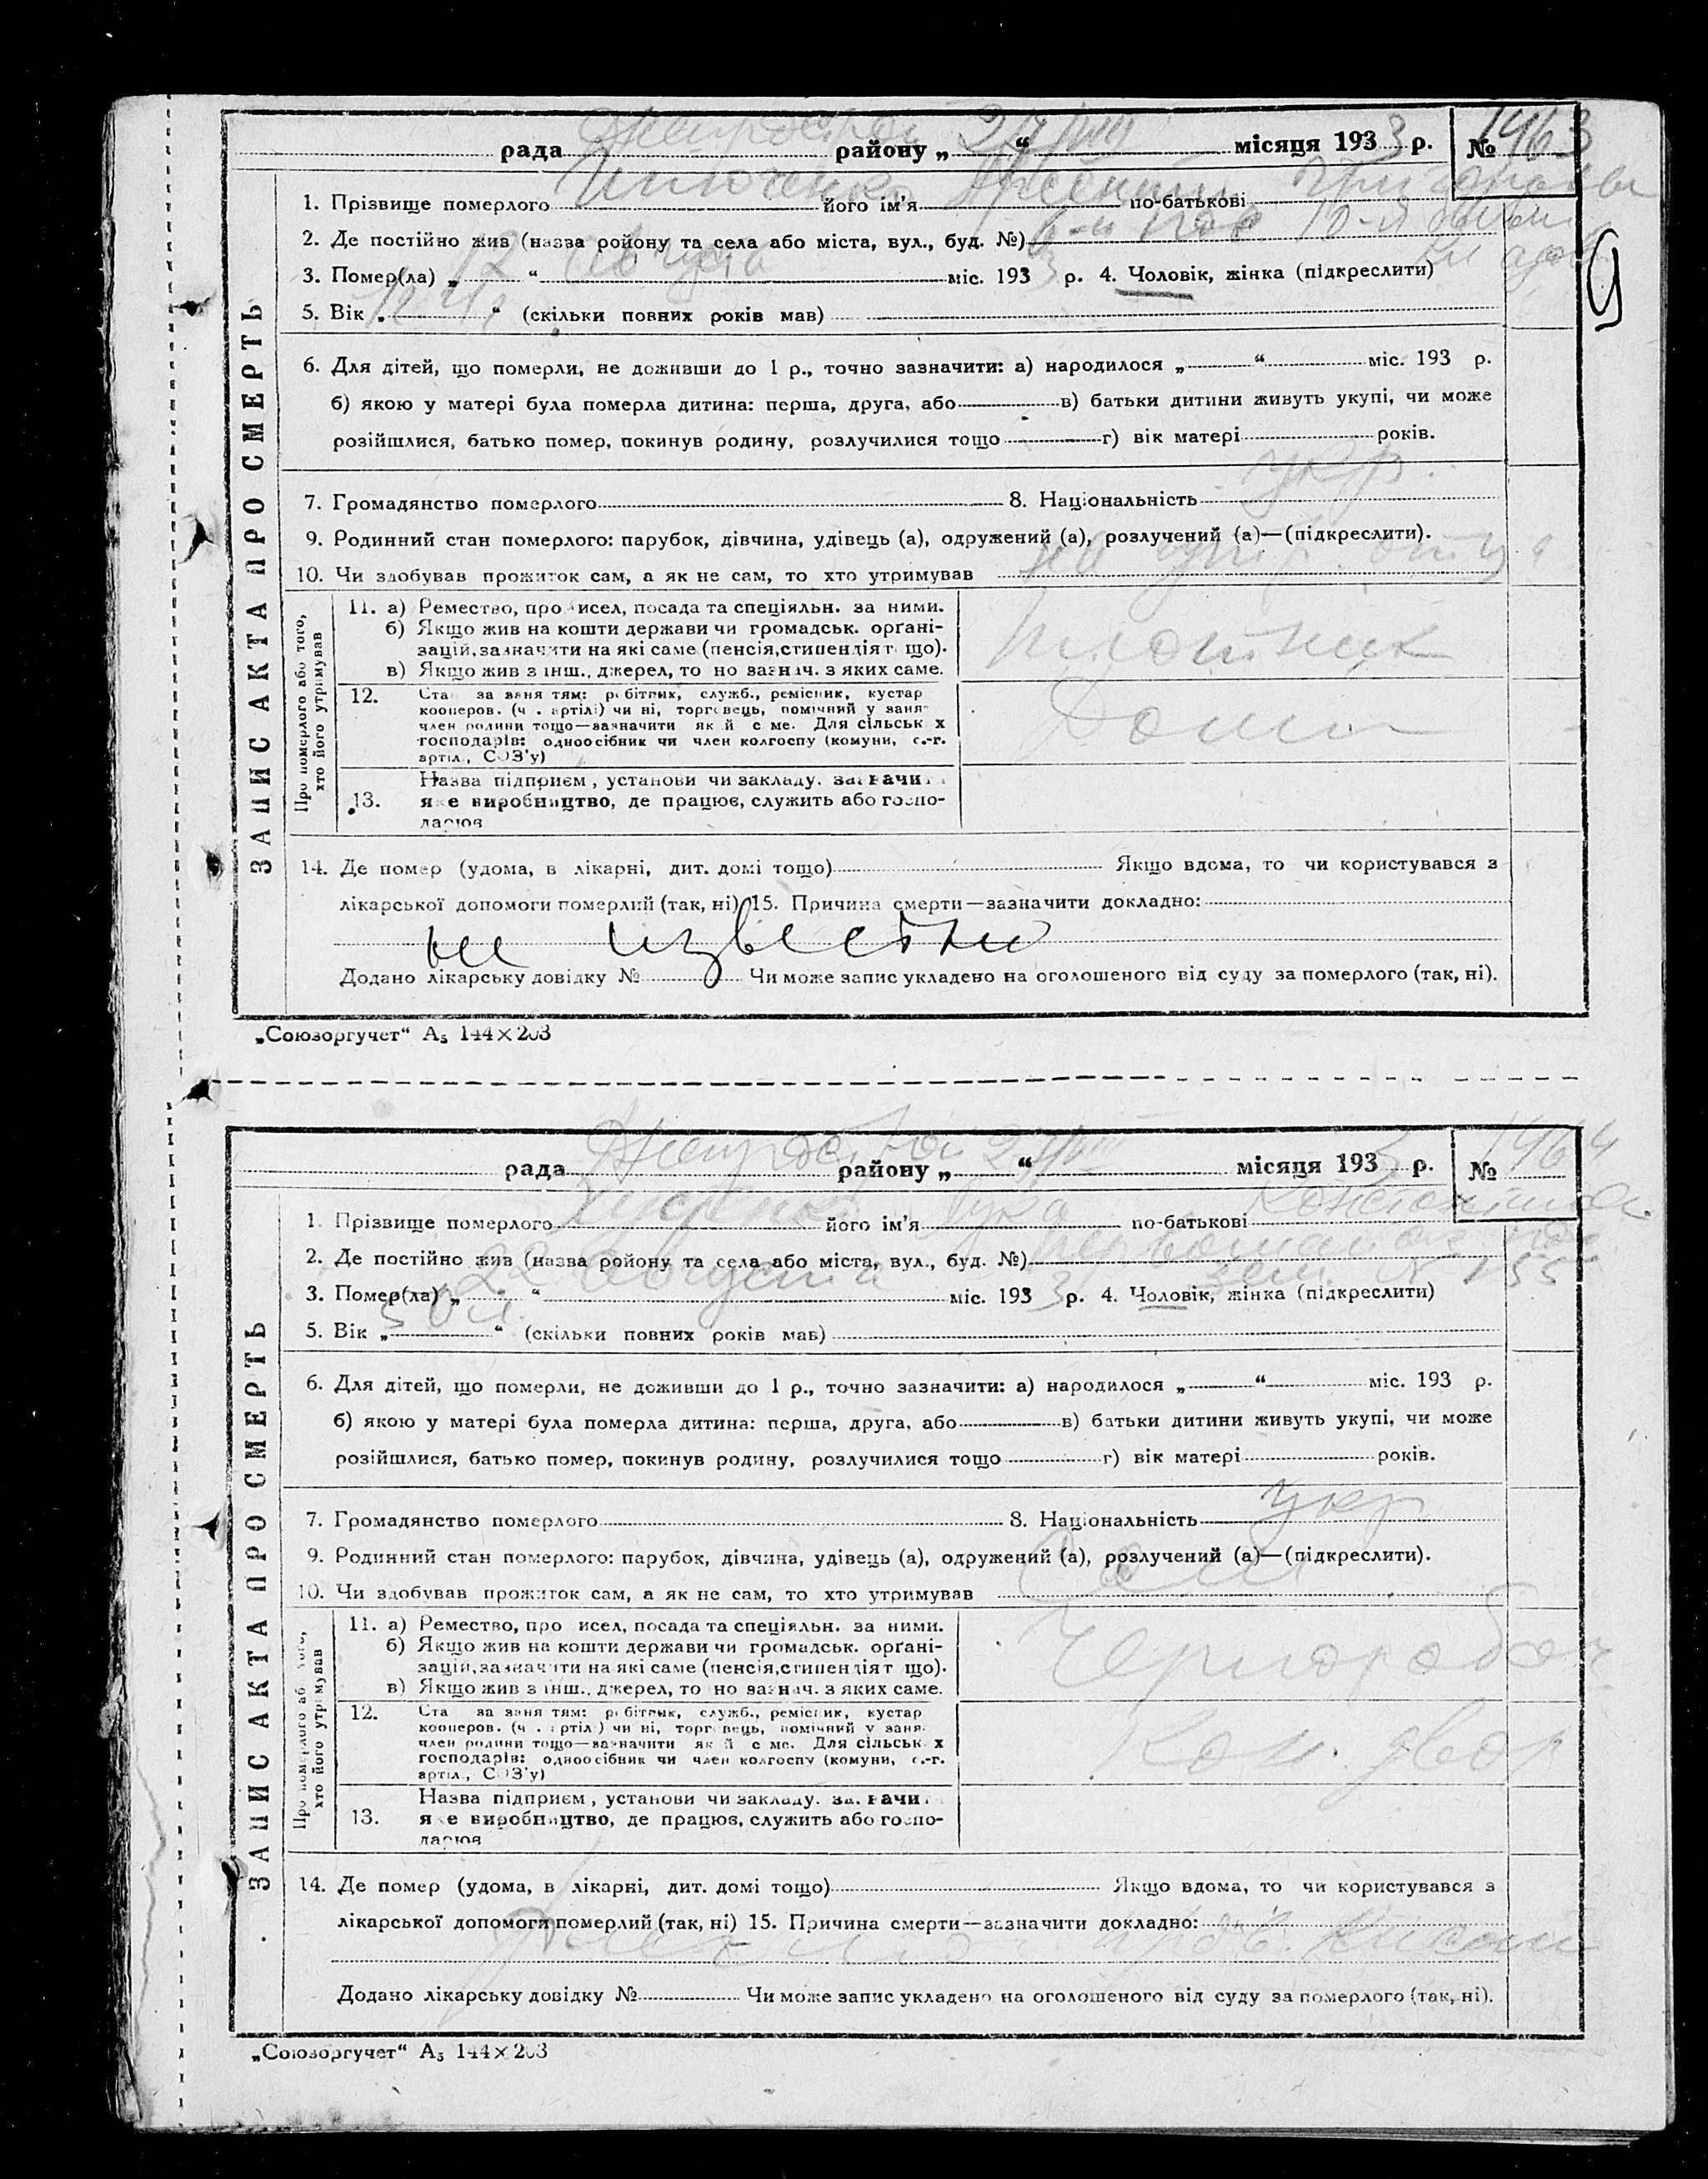 рада Днепрострой району „ 27/VIII “ місяця 1933 р. № 1463
1. Прізвище померлого його ім’я по-батькові Григорьевы
2. Де постійно жив (назва ройону та села або міста, вул., буд. №)
3. Помер(ла) „ 12 “ августа міс. 1933 р. 4. Чоловік, жінка (підкреслити)
5. Вік „ “ (скільки повних років мав)
6. Для дітей, що померли, не доживши до 1 р., точно зазначити: а) народилося „ “ міс. 193 р.
б) якою у матері була померла дитина: перша, друга, або в) батьки дитини живуть укупі, чи може
розійшлися, батько помер, покинув родину, розлучилися тощо г) вік матері років.
7. Громадянство померлого 8. Національність укр.
9. Родинний стан померлого: парубок, дівчина, удівець (а), одружений (а), розлучений (а)—(підкреслити).
10. Чи здобував прожиток сам, а як не сам, то хто утримував на ижд. отца
ЗАПИС АКТА ПРО СМЕРТЬ
Про померлого або того,
хто його утримував
11. а) Ремество, про исел, посада та спеціяльн. за ними.
б) Якщо жив на кошти держави чи громадськ. орґані-
зацій, зазначити на які саме (пенсія, стипендіят що).
в) Якщо жив з інш., джерел, то но зазнач. з яких саме.
плотник
12. Ста за заня тям: р бітник, служб., ремісник, кустар
кооперов. (ч . артілі) чи ні, торговець, помічний у заня-
член родини тощо—зазначити як й с ме. Для сільськ х
господарів: одноосібник чи член колгоспу (комуни, с.-г.
артіл., СОЗ’у)
13. Назва підприєм , установи чи закладу. зазначи
як е виробництво, де працює, служить або госпо-
дарює
14. Де помер (удома, в лікарні, дит. домі тощо) Якщо вдома, то чи користувався з
лікарської допомоги померлий (так, ні) 15. Причина смерти—зазначити докладно:
не известно
Додано лікарську довідку № Чи може запис укладено на оголошеного від суду за померлого (так, ні).
„Союзоргучет“ А₅ 144×203
рада Днепрострой району „ 27/VIII “ місяця 1933 р. № 1464
1. Прізвище померлого його ім’я Лука по-батькові
2. Де постійно жив (назва ройону та села або міста, вул., буд. №)
зем. № 155
3. Помер(ла) „ 22 “ августа міс. 1933 р. 4. Чоловік, жінка (підкреслити)
5. Вік „ 50 л. “ (скільки повних років мав)
6. Для дітей, що померли, не доживши до 1 р., точно зазначити: а) народилося „ “ міс. 193 р.
б) якою у матері була померла дитина: перша, друга, або в) батьки дитини живуть укупі, чи може
розійшлися, батько помер, покинув родину, розлучилися тощо г) вік матері років.
7. Громадянство померлого 8. Національність укр
9. Родинний стан померлого: парубок, дівчина, удівець (а), одружений (а), розлучений (а)—(підкреслити).
10. Чи здобував прожиток сам, а як не сам, то хто утримував Сам
ЗАПИС АКТА ПРО СМЕРТЬ
Про померлого аб того,
хто його утримував
11. а) Ремество, про исел, посада та спеціяльн. за ними.
б) Якщо жив на кошти держави чи громадськ. орґані-
зацій, зазначити на які саме (пенсія, стипендіят що).
в) Якщо жив з інш., джерел, то но зазнач. з яких саме.
Чернорабоч
12. Ста за заня тям: р бітник, служб., ремісник, кустар
кооперов. (ч . артілі) чи ні, торговець, помічний у заня-
член родини тощо—зазначити як й с ме. Для сільськ х
господарів: одноосібник чи член колгоспу (комуни, с.-г.
артіл., СОЗ’у)
Кон. двор
13. Назва підприєм , установи чи закладу. зазначи
як е виробництво, де працює, служить або госпо-
дарює
14. Де помер (удома, в лікарні, дит. домі тощо) Якщо вдома, то чи користувався з
лікарської допомоги померлий (так, ні) 15. Причина смерти—зазначити докладно:
Додано лікарську довідку № Чи може запис укладено на оголошеного від суду за померлого (так, ні).
„Союзоргучет“ А₅ 144×203